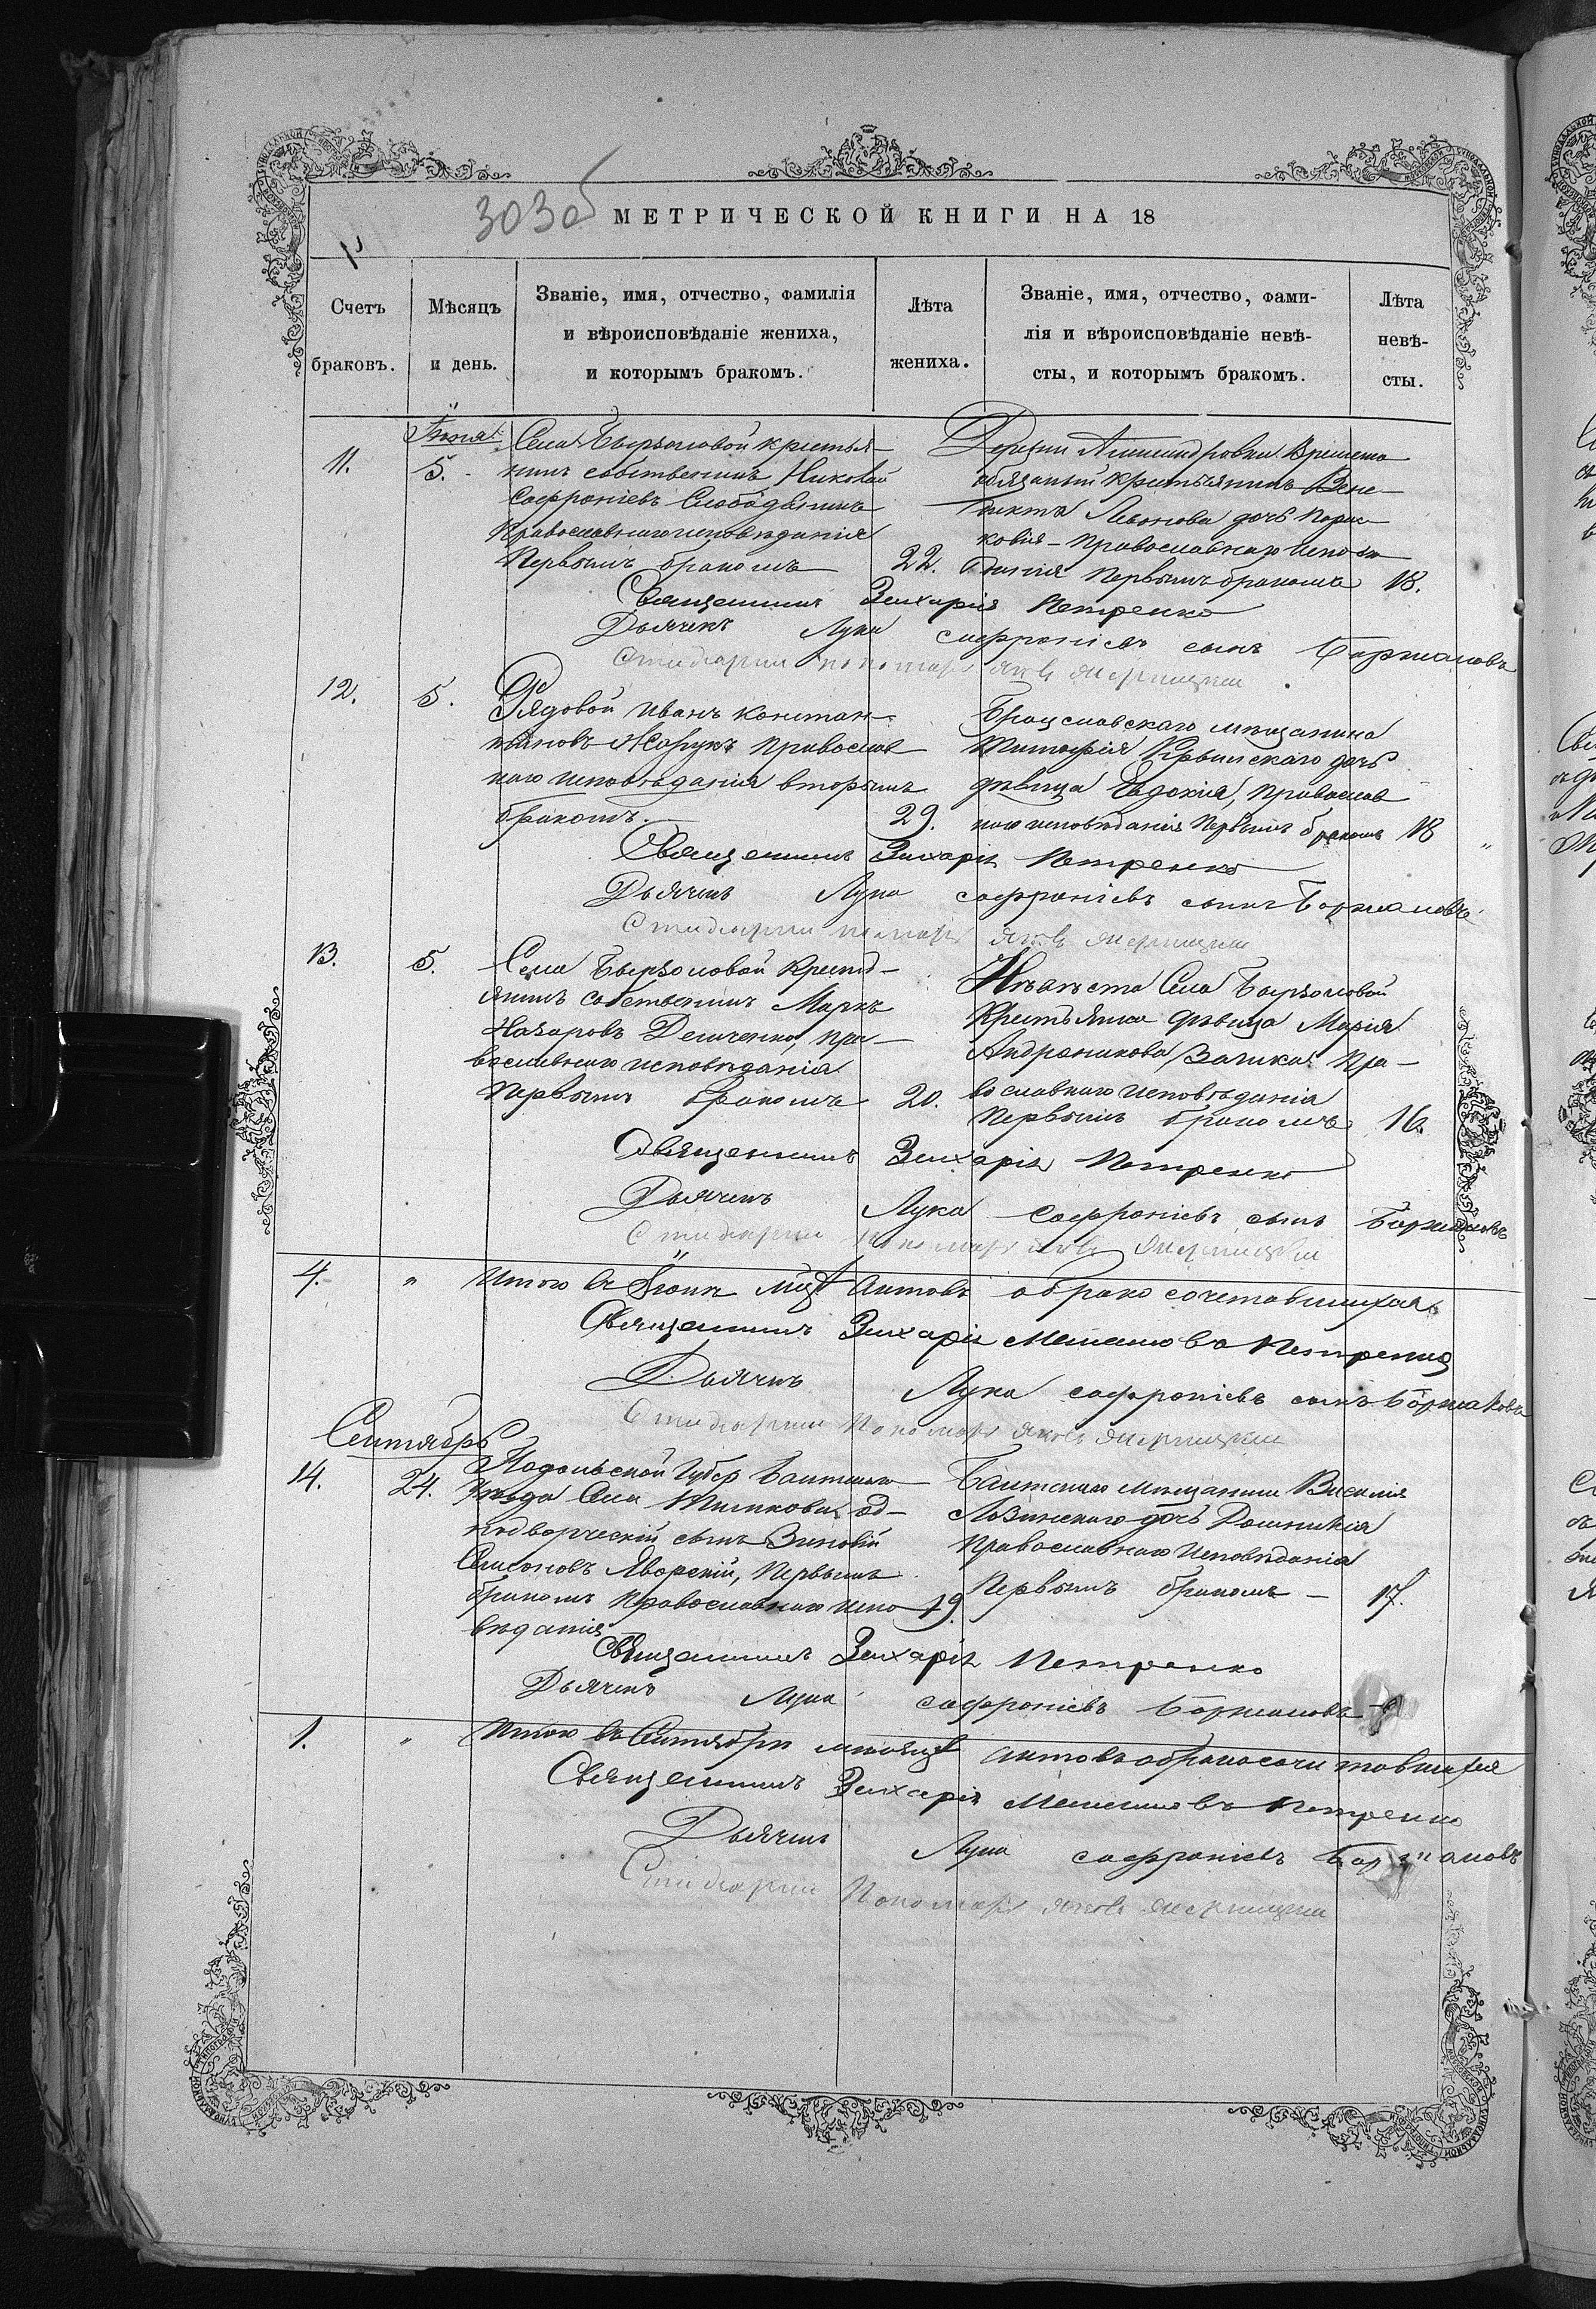 303 об
МЕТРИЧЕСКОЙ КНИГИ НА 18
Счетъ браковъ.
Мѣсяцъ и день.
Званіе, имя, отчество, фамилія
и вѣроисповѣданіе жениха,
и которымъ бракомъ.
Лѣта жениха.
Званіе, имя, отчество, фами-
лія и вѣроисповѣданіе невѣ-
сты, и которымъ бракомъ.
Лѣта невѣ-
сты.
Іюня
11.
5.
Села Бирзоловой крестья-
нинъ собственникъ Николай
Софроніевъ Слободяникъ
Православнаго исповѣданія
Первымъ бракомъ
22.
Деревни Александровки Временно
обязанный крестьянинъ Вене-
дикта Леонова дочь Парас-
ковія - Православнаго исповѣ
данія Первымъ бракомъ
18.
Священникъ Захарія Петренко
Дьячекъ Лука софроніевъ сынъ Боржаковъ
Стихарни пономарь яковъ
12.
5.
Рядовой Иванъ Констан-
тиновъ Православ
наго исповѣданія вторымъ
бракомъ.
29.
Брацславскаго мѣщанина
Тимофея Крыжскаго дочь
дѣвица Евдокія, Православ
наго исповѣданія Первымъ бракомъ
18
Священникъ Захарія Петренко
Дьячекъ Лука софроніевъ сынъ Боржаковъ
Стихарни пономарь яковъ
13.
5.
Села Бирзоловой Кресть-
янинъ собственникъ Маркъ
Назаровъ Демченко, пра-
вославнаго исповѣданія
Первымъ бракомъ
20.
Невѣста Села Бирзоловой
Крестьянка дѣвица Марія
Андроникова Заика Пра-
вославнаго исповѣданія
Первымъ бракомъ
16.
Священникъ Захарія Петренко
Дьячекъ Лука Софроніевъ сынъ Боржаковъ
Стихарни пономарь яковъ
4.
"
Итого въ Іюнѣ мцѣ Актовъ о бракосочетавшихся
Священникъ Захарія Петренко
Дьячекъ Лука софроніевъ сынъ Боржаковъ
Стихарни Пономарь яковъ
Сентябрь
14.
24.
Подольской Губер Балтскаго
Уѣзда Села Тимкова, од-
нодворческій сынъ Зиновій
Симоновъ Яворскій, Первымъ
бракомъ Православнаго испо
вѣданія
19.
Балтскаго мѣщанина Василія
Лозинскаго дочь Домникія
Православнаго Исповѣданія
Первымъ бракомъ -
17.
Священникъ Захарія Петренко
Дьячекъ Лука софроніевъ Боржаковъ
1.
"
Итого въ Сентябрѣ мѣсяцѣ актовъ о бракосочетавшихся
Священникъ Захарія Петренко
Дьячекъ Лука софроніевъ Боржаковъ
Стихарни Пономарь яковъ